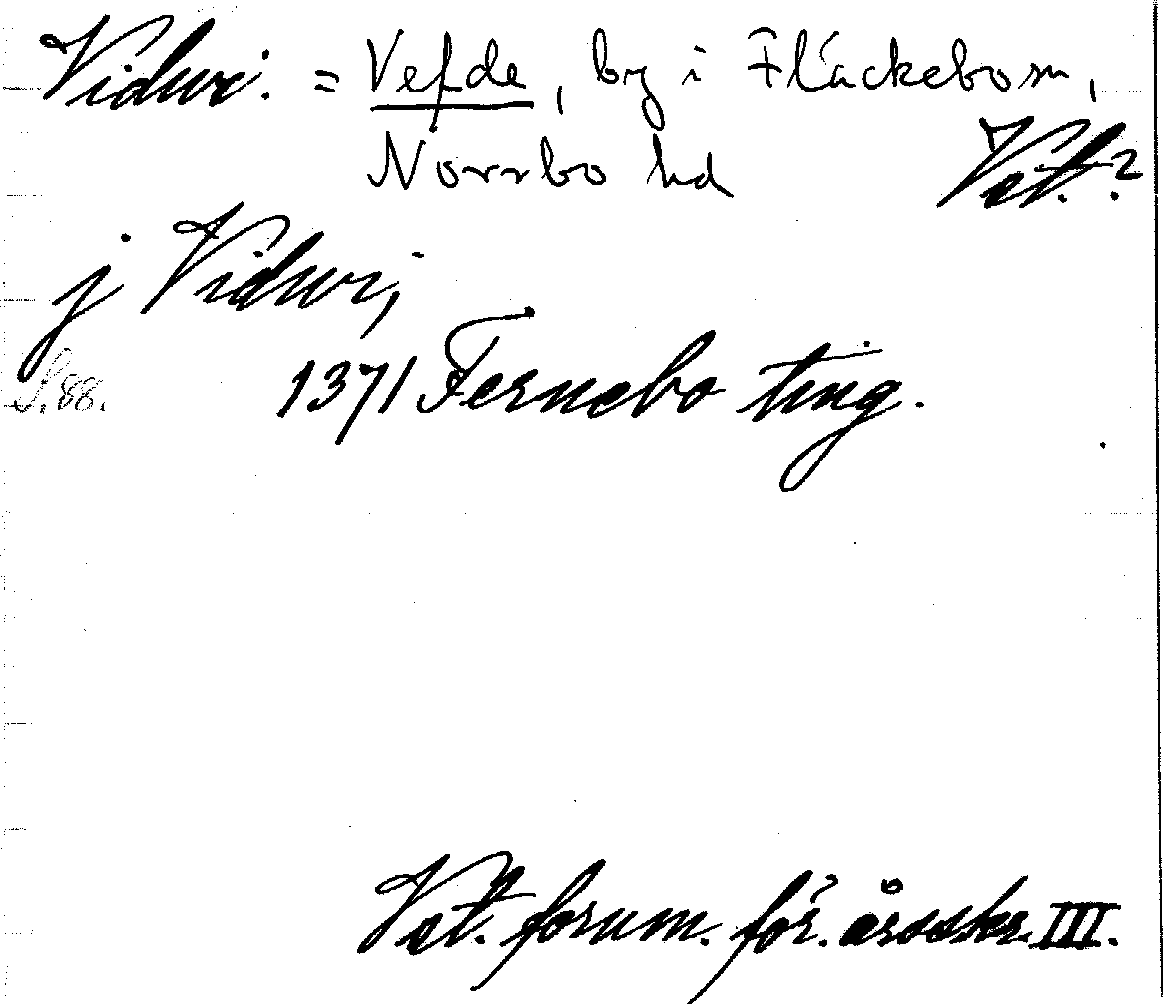 Vidwi. = Vefde, by i Fläckebo sn,
Norrbo hd
Vst.?
j Vidwi,
S. 88.
1371 Fernebo ting.
Vst. fornm. för. årsskr. III.